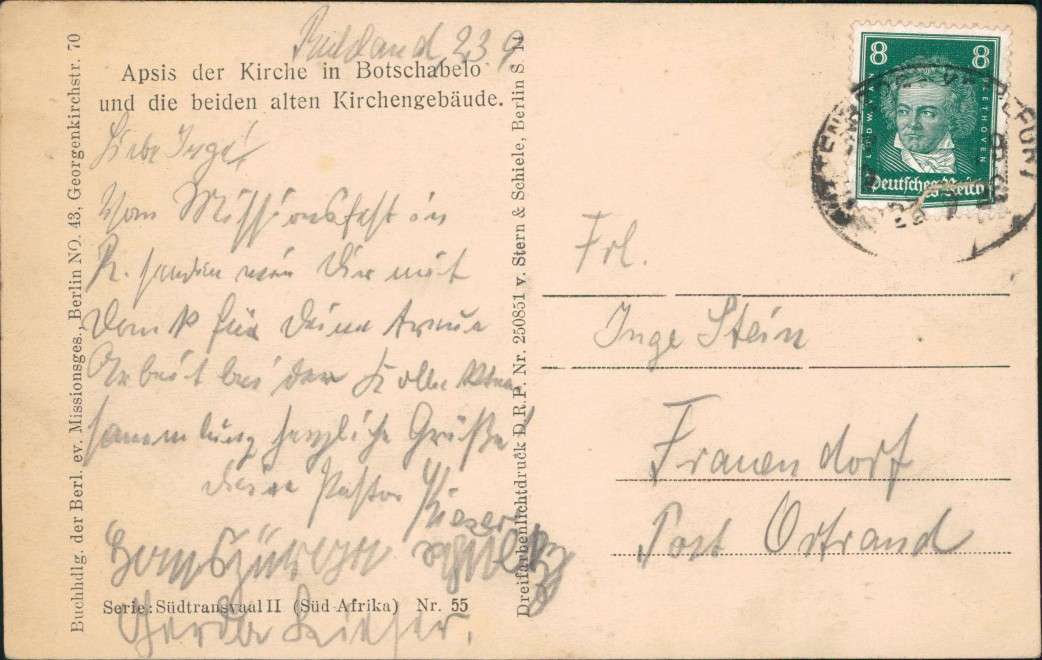 Ruhland 23 9
Apsis der Kirche in Botschabelo
und die beiden alten Kirchengebäude.
Liebe Inge!
Vom Missionsfest in
R. senden wir Dir mit
Dank für Deine treue
Arbeit bei der Kollekten-
sammlung herzliche Grüße!
Deine Pastor
Gerda
Serie: Südtransvaal II (Süd-Afrika) Nr. 55
Buchhdlg. der Berl. ev. Missionsges., Berlin NO. 43, Georgenkirchstr. 70
Dreifarbenlichtdruck D.R.P. Nr. 250851 v. Stern & Schiele, Berlin S. N
8 8
LUDW. V. BEETHOVEN
Deutsches Reich
Frl.
Inge Stein
Frauendorf
Post Ortrand